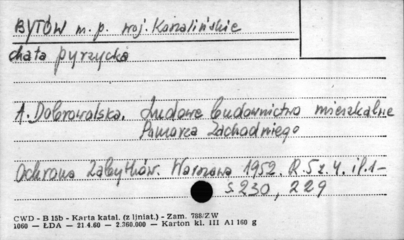 BYTÓW m.p. woj. Koszalińskie
chata pyrzycka
A. Dobrowolska. Ludowe budownictwo mieszkalne
Pomorza Zachodniego
Ochrona Zabytków. Warszawa 1952. R.5 z.4. il. 1-
s 230, 229
CWD - B 15b - Karta katal. (z liniat.) - Zam. 788/ZW
1060 — ŁDA — 21.4.60 — 2.360.000 — Karton kl. III A1 160 g